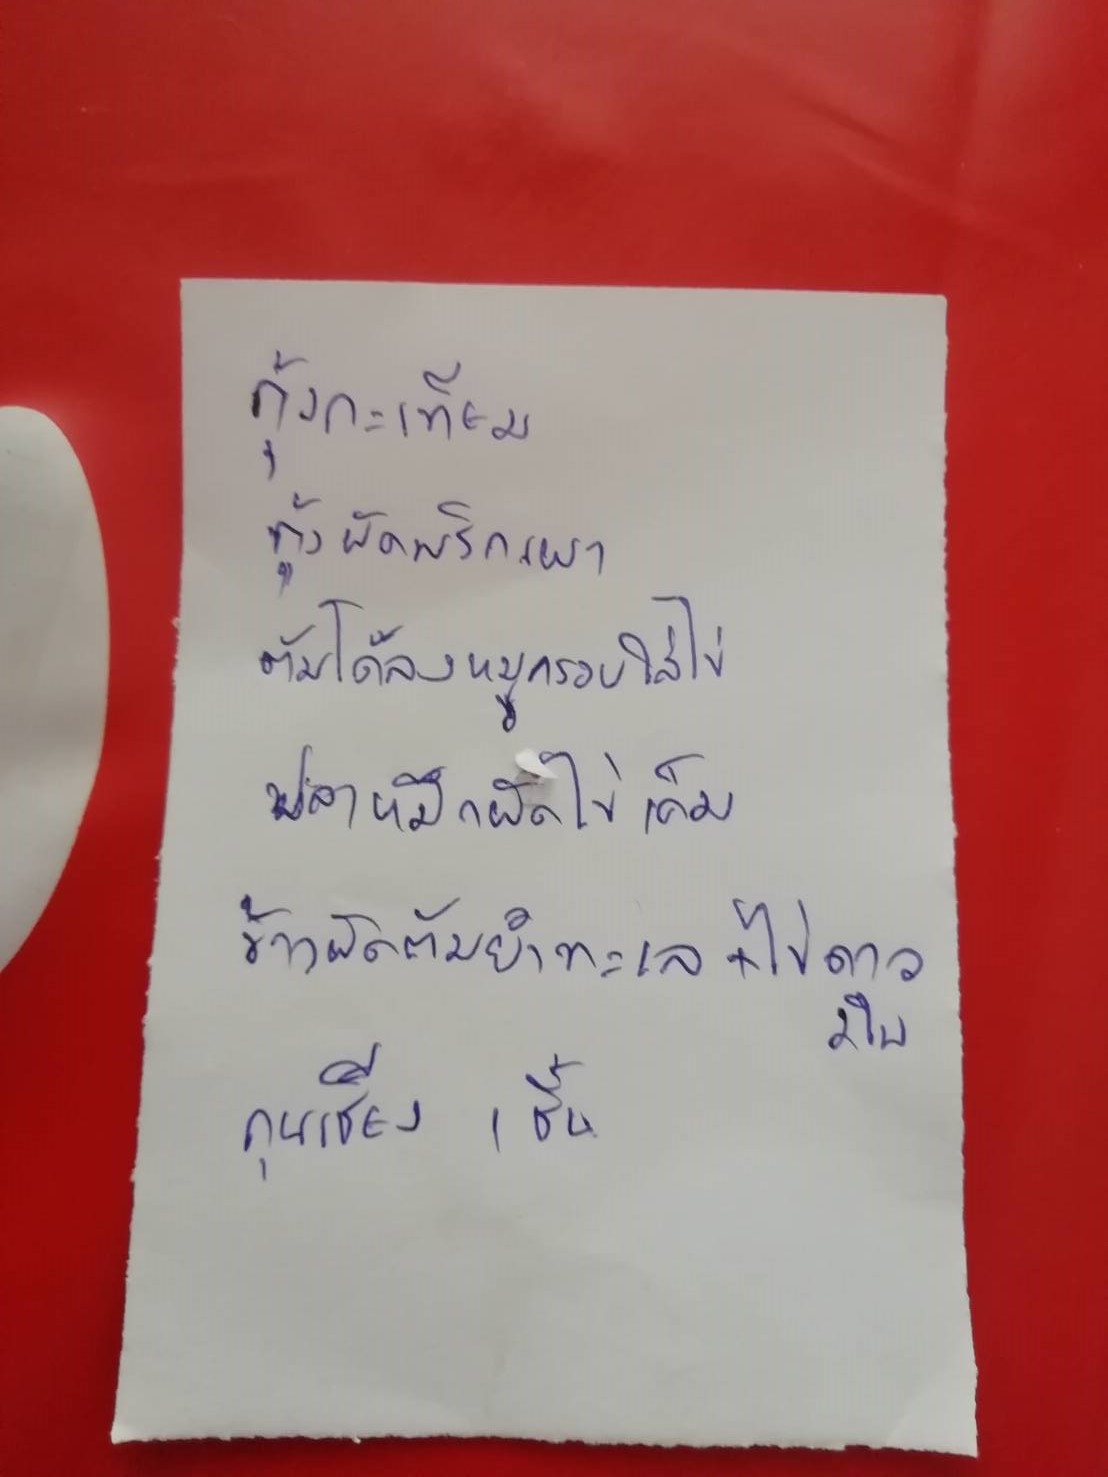 กุ้งกะเทียม
กุ้งผัดพริกเผา
ต้มโด้ลงหมูกรอบใส่ไข่
ปลาหมึกผัดไข่เค็ม
ข้าวผัดต้มยำทะเล +ไข่ดาว
กุนเชียง 1 ชิ้น